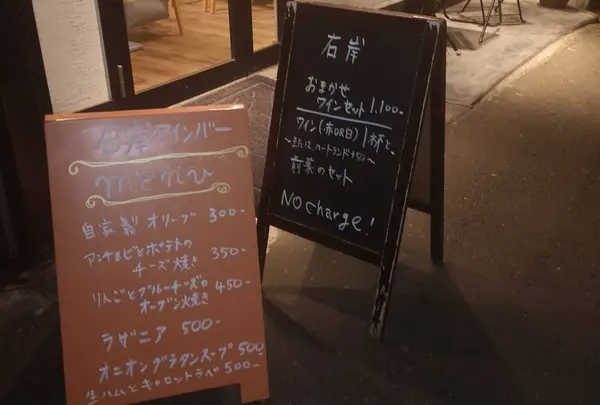 右岸ワインバー
menu
自家製 オリーブ 300-
アンチョビとポテトの
チーズ焼き 350-
りんごとブルーチーズの
オーブン焼き 450-
ラザニア 500-
オニオングラタンスープ 500
生ハムとキャロットラペ 500-
右岸
おまかせ
ワインセット 1.100-
ワイン(赤OR白)1杯と、
~または、ハートランド+50~
前菜のセット
NO charge!